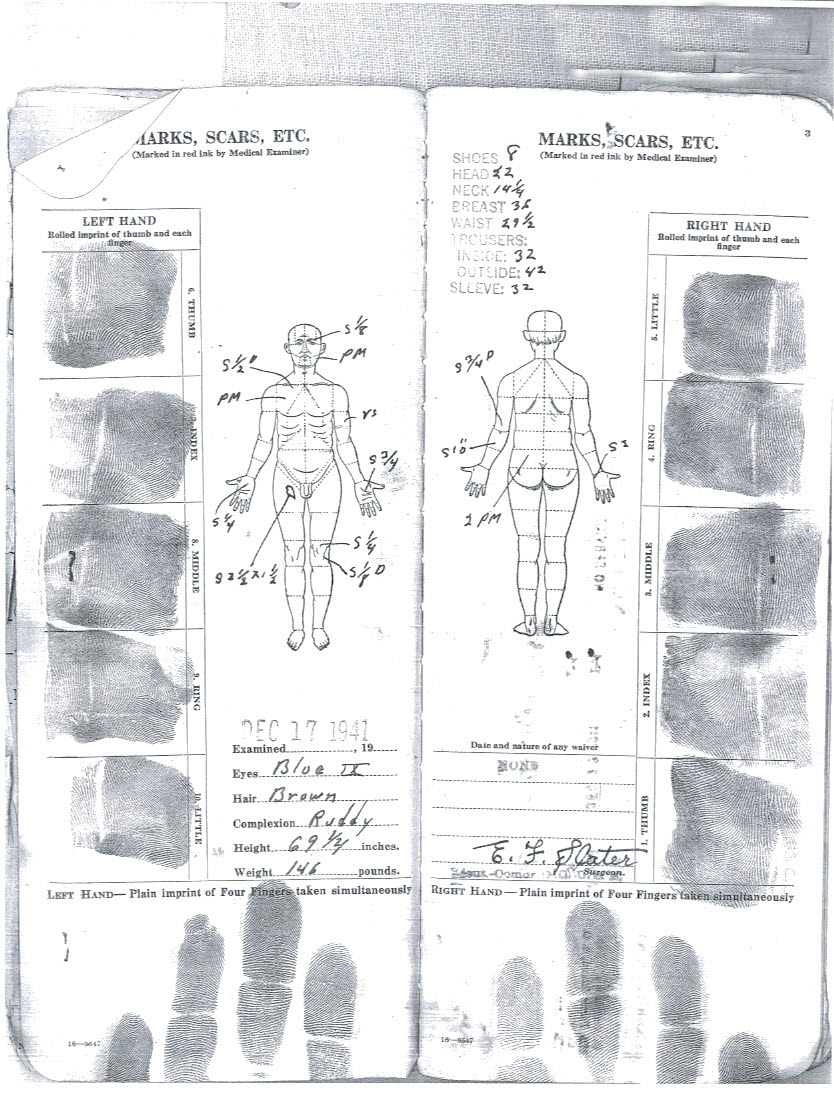 MARKS, SCARS, ETC.
(Marked in red ink by Medical Examiner)
LEFT HAND
Rolled imprint of thumb and each
finger
6. THUMB
7. INDEX
8. MIDDLE
9. RING
10. LITTLE
S 1/8
PM
S 1/2 P
PM
VS
S 3/4
S 1/4
S 1/4
S 1/8 D
S 2 1/2 X 1 1/2
DEC 17 1941
Examined , 19
Eyes Blue IX
Hair Brown
Complexion Ruddy
Height 69 1/2 inches.
Weight 146 pounds.
LEFT HAND— Plain imprint of Four Fingers taken simultaneously
16—9547
3
MARKS, SCARS, ETC.
(Marked in red ink by Medical Examiner)
SHOES 8
HEAD 22
NECK 14 1/4
BREAST 35
WAIST 29 1/2
TROUSERS:
INSIDE: 32
OUTSIDE: 42
SLEEVE: 32
RIGHT HAND
Rolled imprint of thumb and each
finger
5. LITTLE
4. RING
3. MIDDLE
2. INDEX
1. THUMB
S 3/4 P
S 10"
S 1
2 PM
Date and nature of any waiver
NONE
E. F. Slater
Surgeon.
RIGHT HAND — Plain imprint of Four Fingers taken simultaneously
16—9547